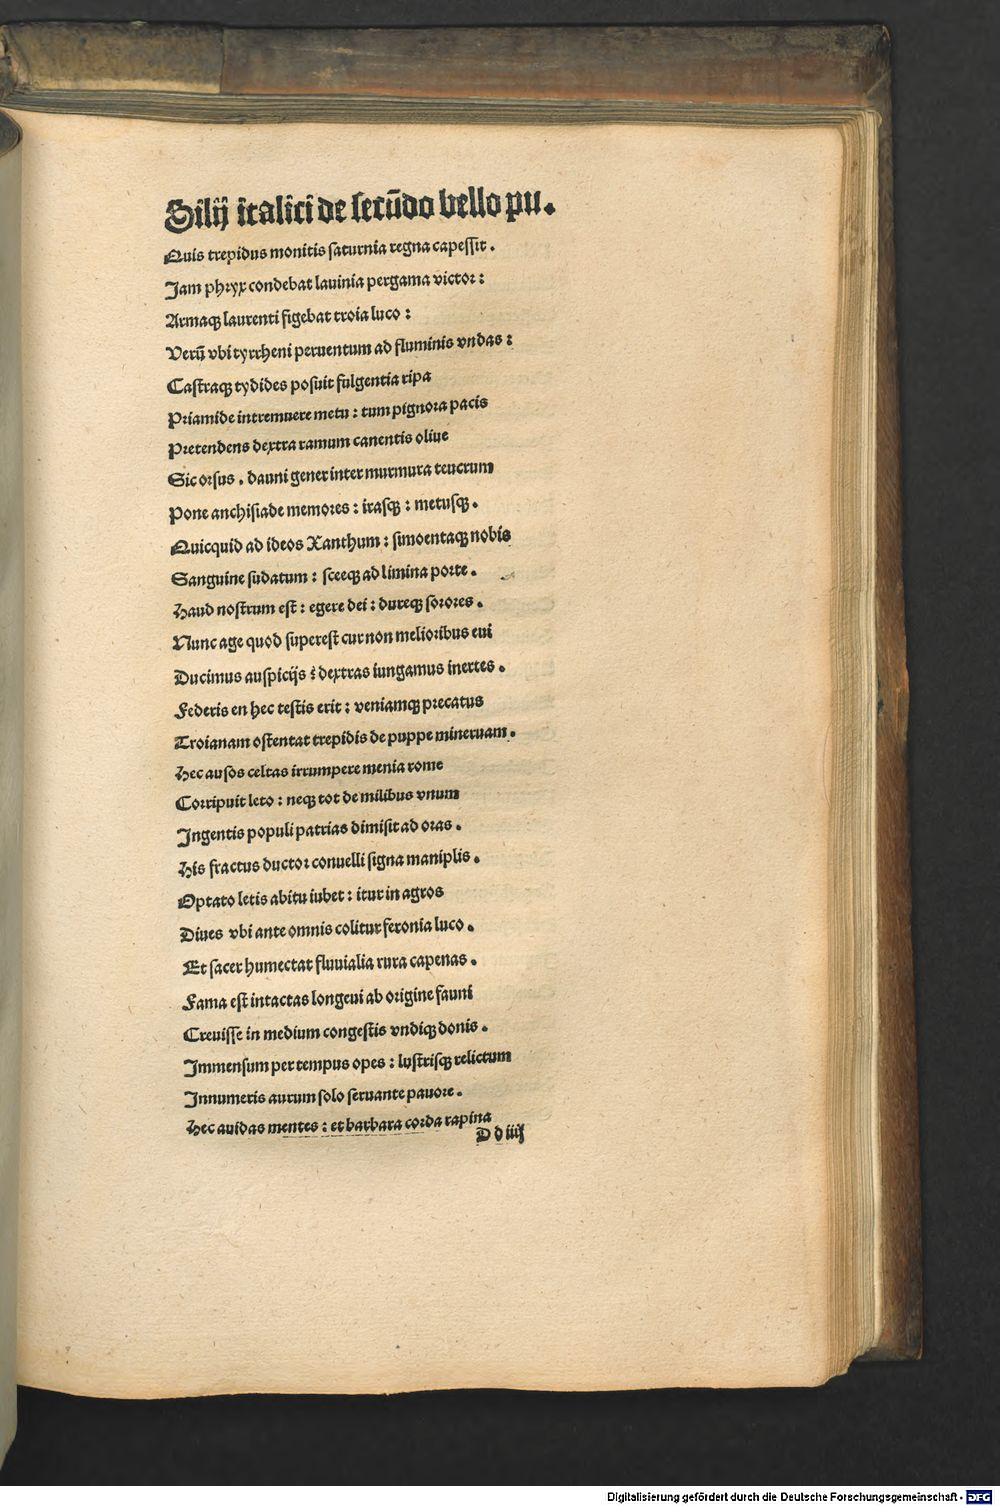 Silij italici de secūdo bello pu.
Quis trepidus monitis saturnia regna capessit.
Jam phryx condebat lauinia pergama victor:
Armaqꝫ laurenti figebat troia luco:
Verū vbi tyrrheni peruentum ad fluminis vndas:
Castraqꝫ tydides posuit fulgentia ripa
Priamide intremuere metu: tum pignora pacis
Pretendens dextra ramum canentis oliue
Sic orsus. dauni gener inter murmura teucrum
Pone anchisiade memores: irasqꝫ: metusqꝫ.
Quicquid ad ideos Xanthum: simoentaqꝫ nobis
Sanguine sudatum: sceeqꝫ ad limina porte.
Haud nostrum est: egere dei: dureqꝫ sorores.
Nunc age quod superest cur non melioribus eui
Ducimus auspicijs: dextras iungamus inertes.
Federis en hec testis erit: veniamqꝫ precatus
Troianam ostentat trepidis de puppe mineruam.
Hec ausos celtas irrumpere menia rome
Corripuit leto: neqꝫ tot de milibus vnum
Ingentis populi patrias dimisit ad oras.
His fractus ductor conuelli signa maniplis.
Optato letis abitu iubet: itur in agros
Diues vbi ante omnis colitur feronia luco.
Et sacer humectat fluuialia rura capenas.
Fama est intactas longeui ab origine fauni
Creuisse in medium congestis vndiqꝫ donis.
Immensum per tempus opes: lustrisqꝫ relictum
Innumeris aurum solo seruante pauore.
Hec auidas mentes: et barbara corda rapina
D d iiij
Digitalisierung gefördert durch die Deutsche Forschungsgemeinschaft - DFG